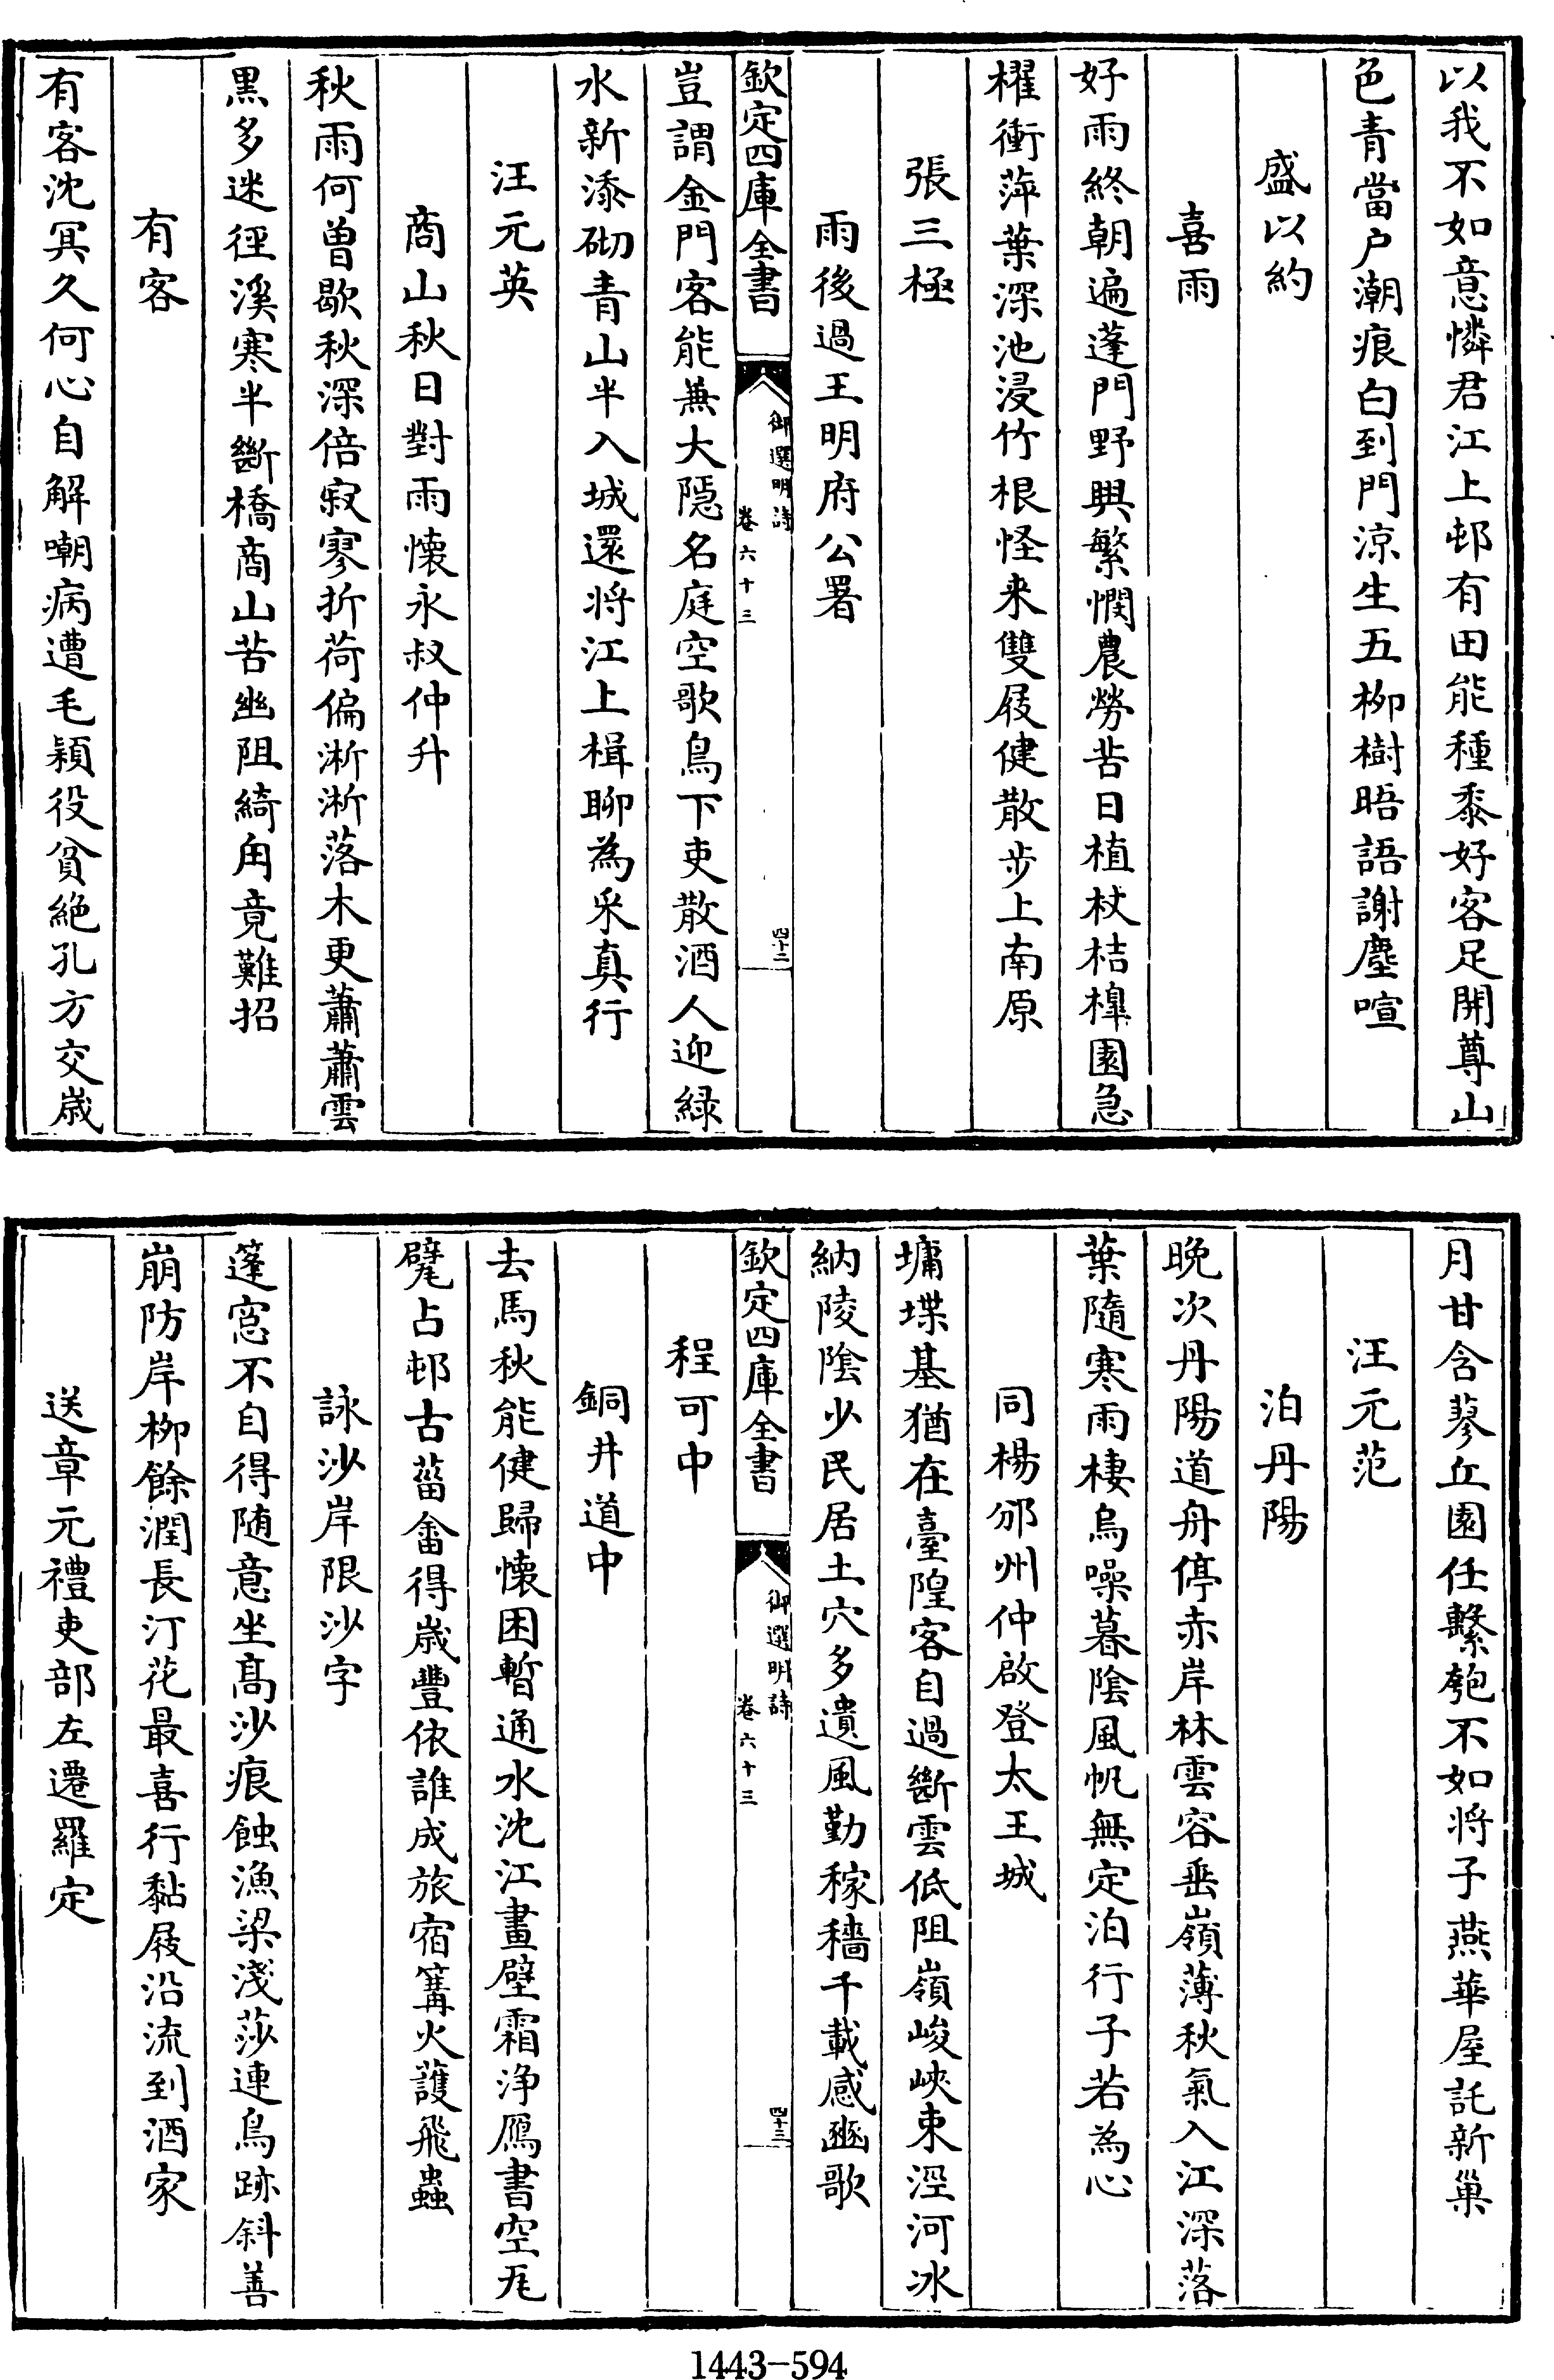 以我不如意憐君江上邨有田能種黍好客足開尊山
色青當户潮痕白到門涼生五柳樹晤語謝塵喧
盛以約
喜雨
好雨終朝遍蓬門野興繁憫農勞昔日植杖桔槹園急
櫂衝萍葉深池浸竹根怪来雙屐健散步上南原
張三極
雨後過王明府公署
欽定四庫全書
御選明詩
卷六十三
四十二
豈謂金門客能兼大隠名庭空歌鳥下吏散酒人迎緑
水新添砌青山半入城還将江上楫聊為采真行
汪元英
商山秋日對雨懐永叔仲升
秋雨何曽歇秋深倍寂寥折荷偏淅淅落木更蕭蕭雲
黒多迷徑溪寒半斷橋商山苦幽阻綺甪竟難招
有客
有客沈冥久何心自解嘲病遭毛穎役貧絶孔方交嵗
月甘含蓼丘園任繫匏不如将子燕華屋託新巢
汪元范
泊丹陽
晚次丹陽道舟停赤岸林雲容垂嶺薄秋氣入江深落
葉隨寒雨棲烏噪暮陰風帆無定泊行子若為心
同楊邠州仲啟登太王城
墉堞基猶在臺隍客自過斷雲低阻嶺峻峽束涇河冰
納陵陰少民居土穴多遺風勤稼穡千載感豳歌
欽定四庫全書
御選明詩
卷六十三
四十三
程可中
銅井道中
去馬秋能健歸懐困暫通水沈江畫壁霜浄鴈書空兎
躄占邨古菑畬得嵗豐依誰成旅宿篝火護飛蟲
詠沙岸限沙字
篷窓不自得随意坐髙沙痕蝕漁梁淺莎連鳥跡斜善
崩防岸柳餘潤長汀花最喜行黏屐沿流到酒家
送章元禮吏部左遷羅定
1443-594